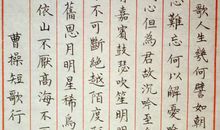 歌人生幾何譬如朝
難忘何以解憂唯
心但為君故沉吟至
有嘉賓鼓瑟吹笙明
不可斷絕越陌度
舊恩月明星稀烏
依山不厭高海不
曹操短歌行